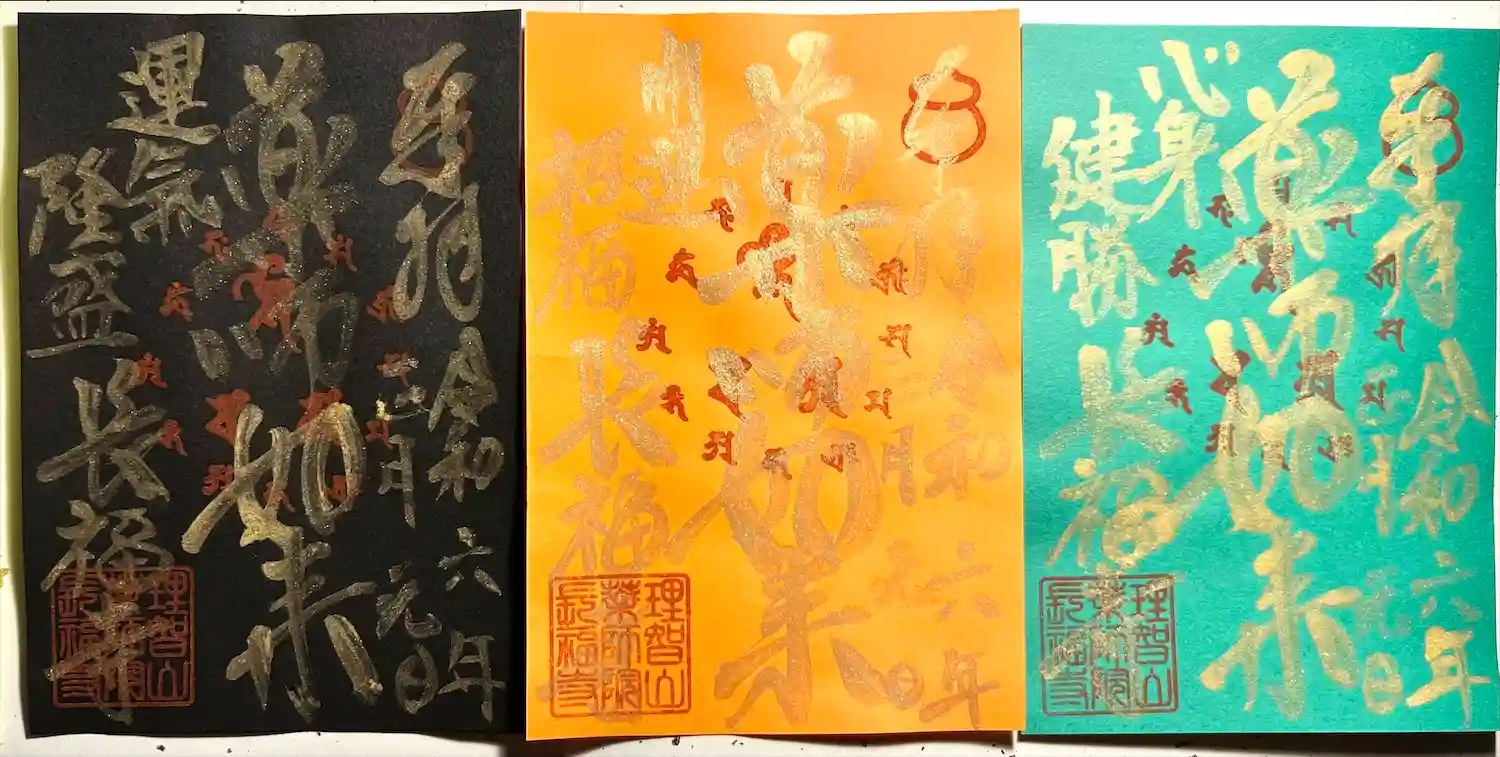 奉拝
令和六年
月元日
薬師如来
運氣
隆盛
長福寺
理智山
薬師院
長福寺
奉拝
令和六年
月元日
薬師如来
開運
招福
長福寺
理智山
薬師院
長福寺
奉拝
令和六年
月元日
薬師如来
心身
健勝
長福寺
理智山
薬師院
長福寺